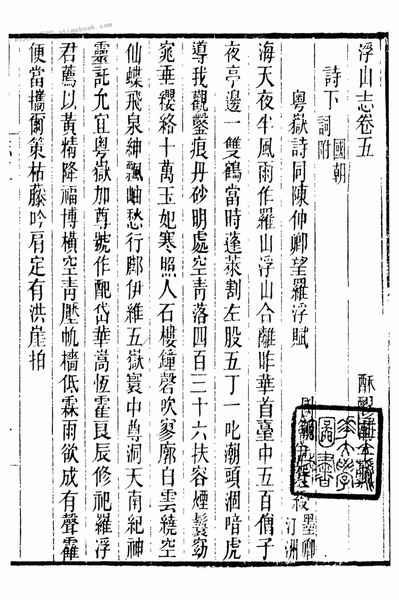 浮山志卷五
酥醪
詩下 國朝
詞附
粵嶽詩同陳仲卿望羅浮賦
墨卿
汀洲
海天夜半風雨作羅山浮山合離昨華首臺中五百僧子
夜亭邊一雙鶴當時蓬萊割左股五丁一叱潮頭涸喑虎
導我觀鑿痕丹砂明處空靑落四百三十六扶容煙鬟窈
窕垂纓絡十萬玉妃寒照人石樓鐘磬吹寥廓白雲繞空
仙蝶飛泉紳飄岫愁行腳伊維五嶽寰中尊洞天南紀神
靈託允宜粵嶽加尊號作配岱華嵩恆霍良辰修祀羅浮
君薦以黃精降福博橫空靑壓帆檣低霖雨欲成有聲靃
便當攜爾策枯藤吟肩定有洪崖拍